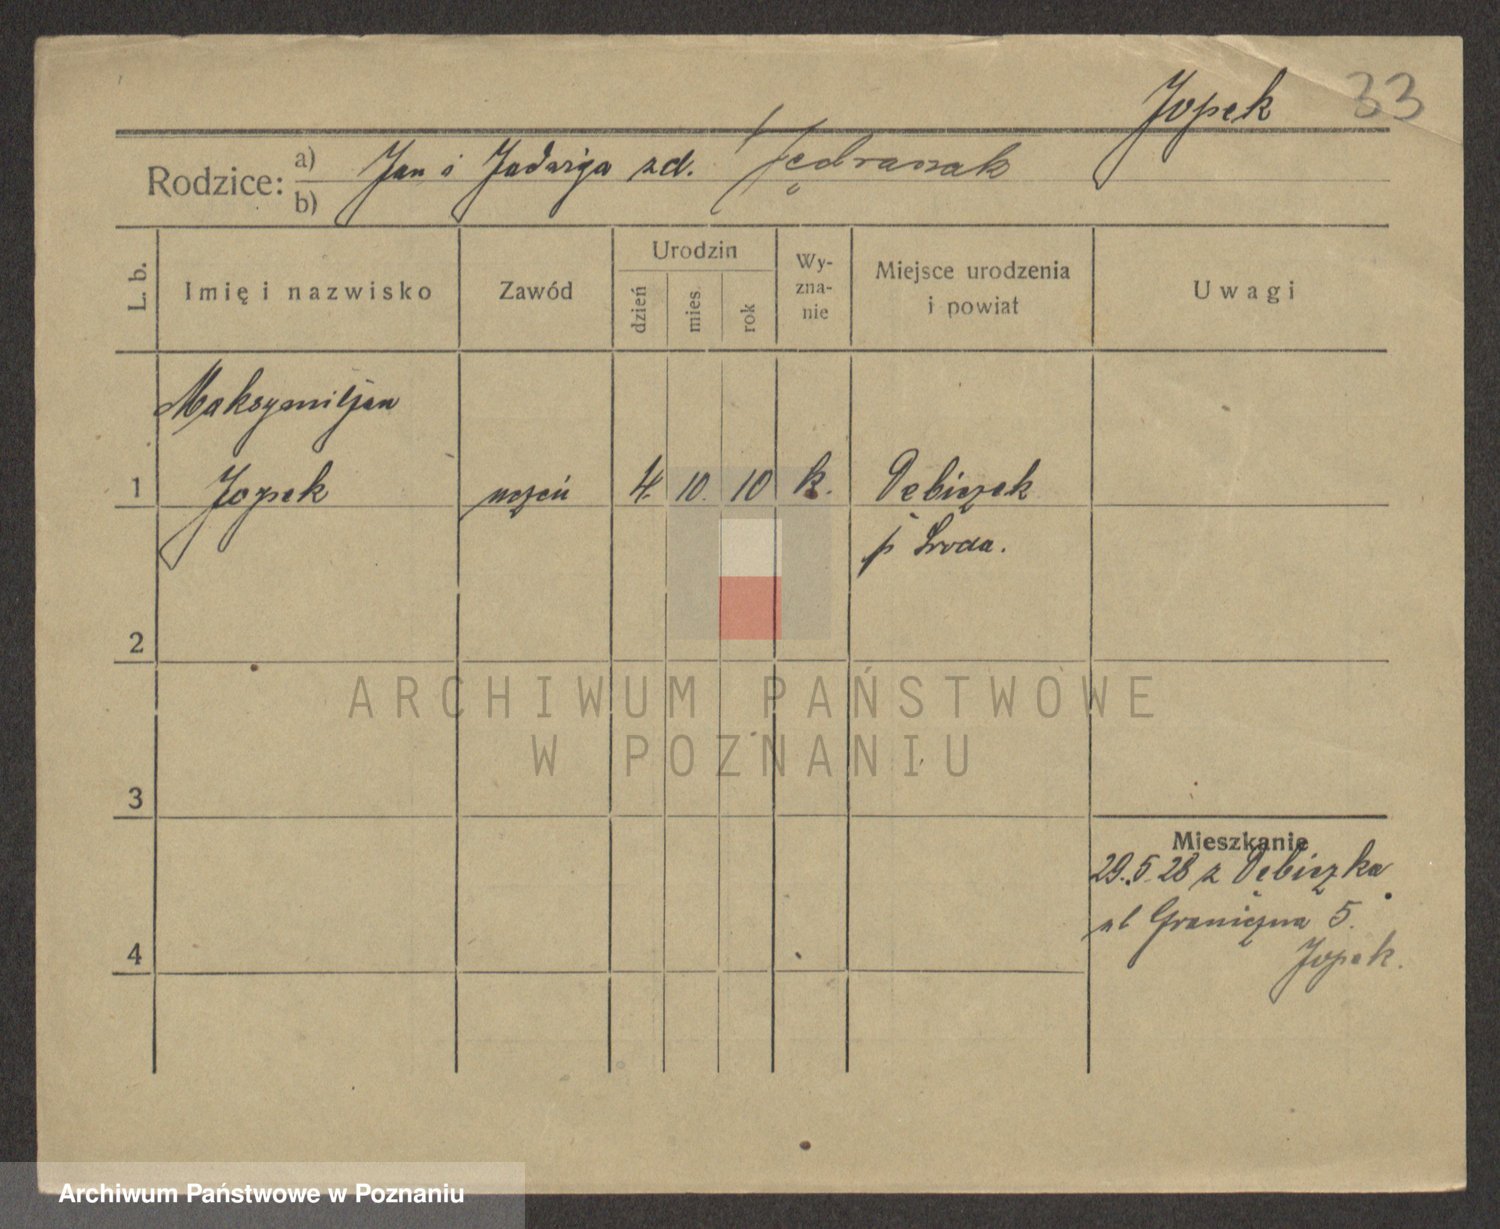 Jopek 33
Rodzice: a) Jan i Jadwiga zd. Jędraszak
b)
L. b. Imię i nazwisko Zawód Urodzin dzień mies. rok Wy-zna-nie Miejsce urodzenia i powiat Uwagi
Maksymiljan
1 Jopek uczeń 4. 10. 10 k. Dębiczek
p Środa.
2
ARCHIWUM PAŃSTWOWE
W POZNANIU
3
Mieszkanie
29.5.28 z Dębiczka
ul Graniczna 5.
4 Jopek.
Archiwum Państwowe w Poznaniu